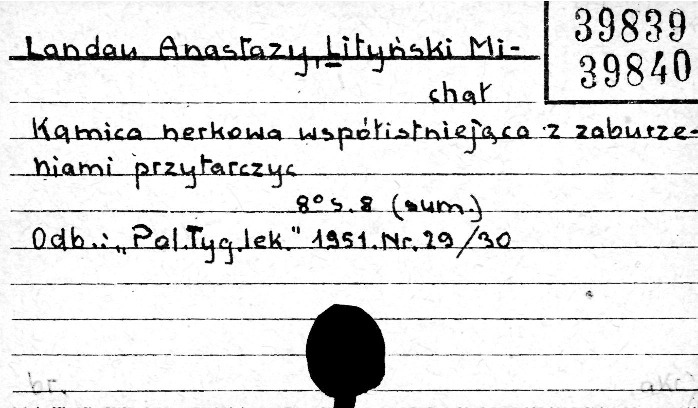 39839
39840
Landau Anastazy, Lityński Mi-
chał
Kamica nerkowa współistniejąca z zaburze-
niami przytarczyc
8° s. 8 (sum.)
Odb.: „Pol. Tyg. lek." 1951. Nr. 29/30
br.
akc.